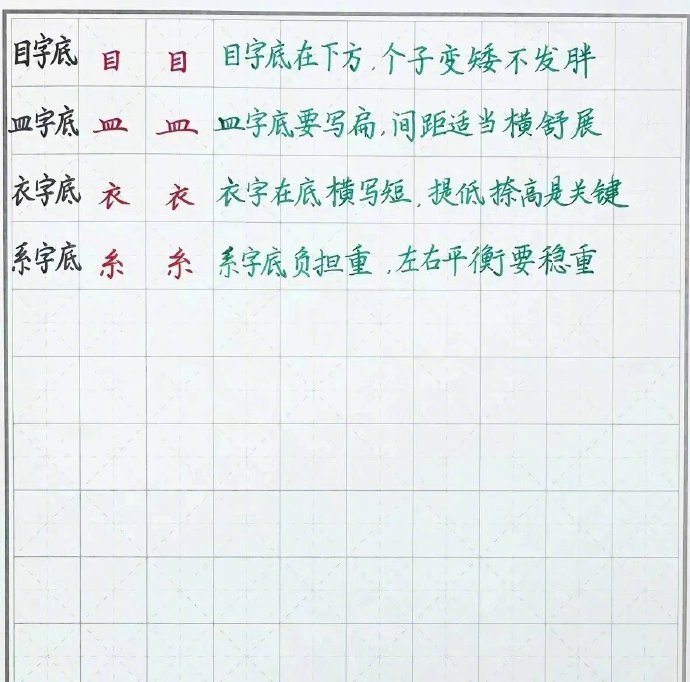 目字底 目 目 目字底在下方,个子变矮不发胖
皿字底 皿 皿 皿字底要写扁,间距适当横舒展
衣字底 衣 衣 衣字在底横写短,提低捺高是关键
系字底 糸 糸 系字底负担重,左右平衡要稳重